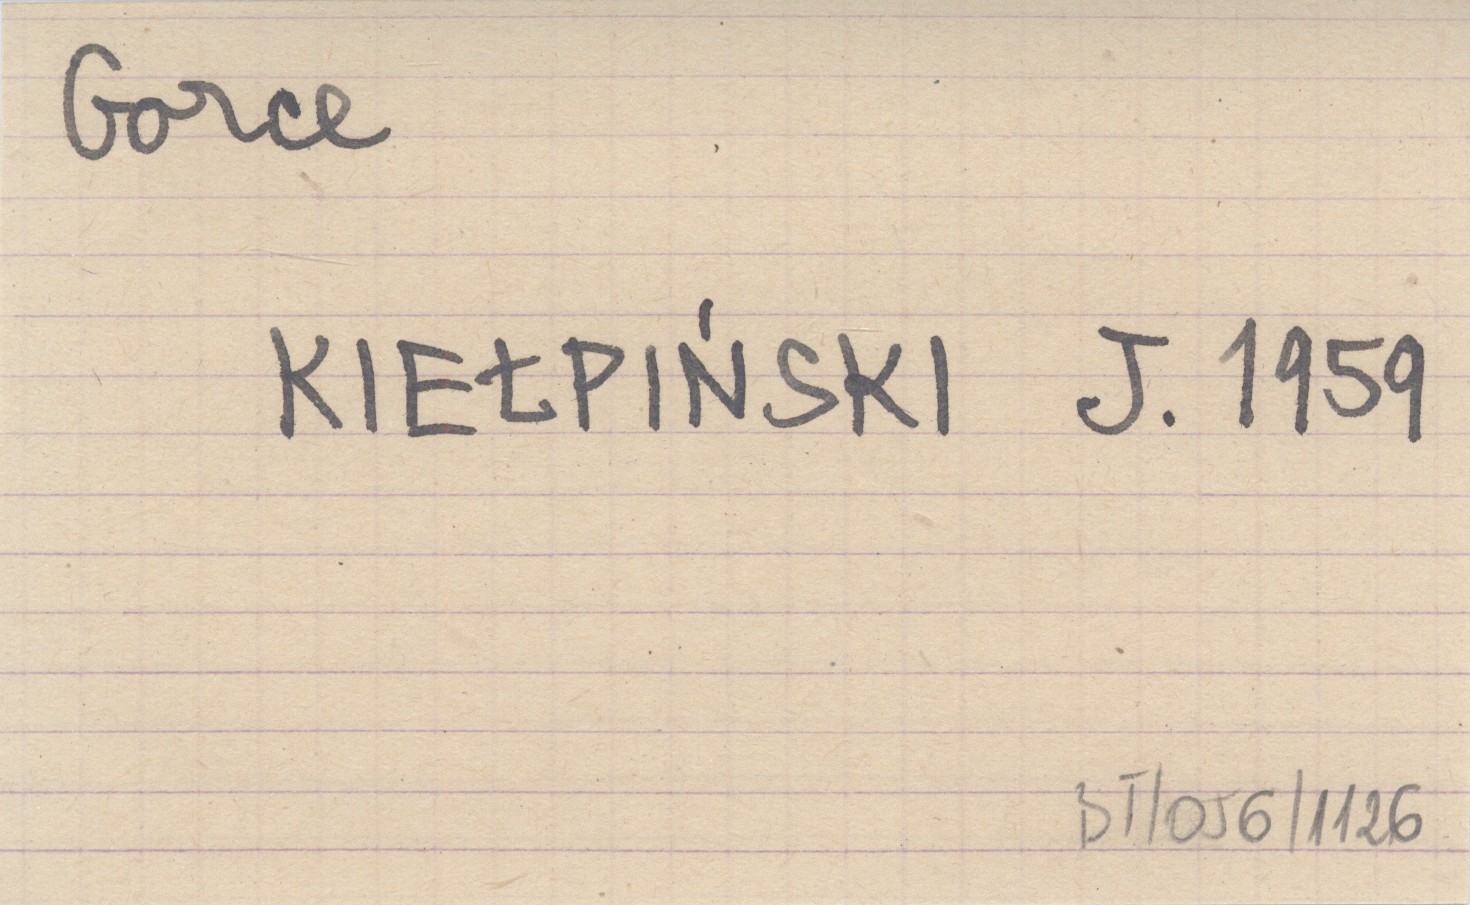 Gorce
KIEŁPIŃSKI J. 1959
BT/056/1126